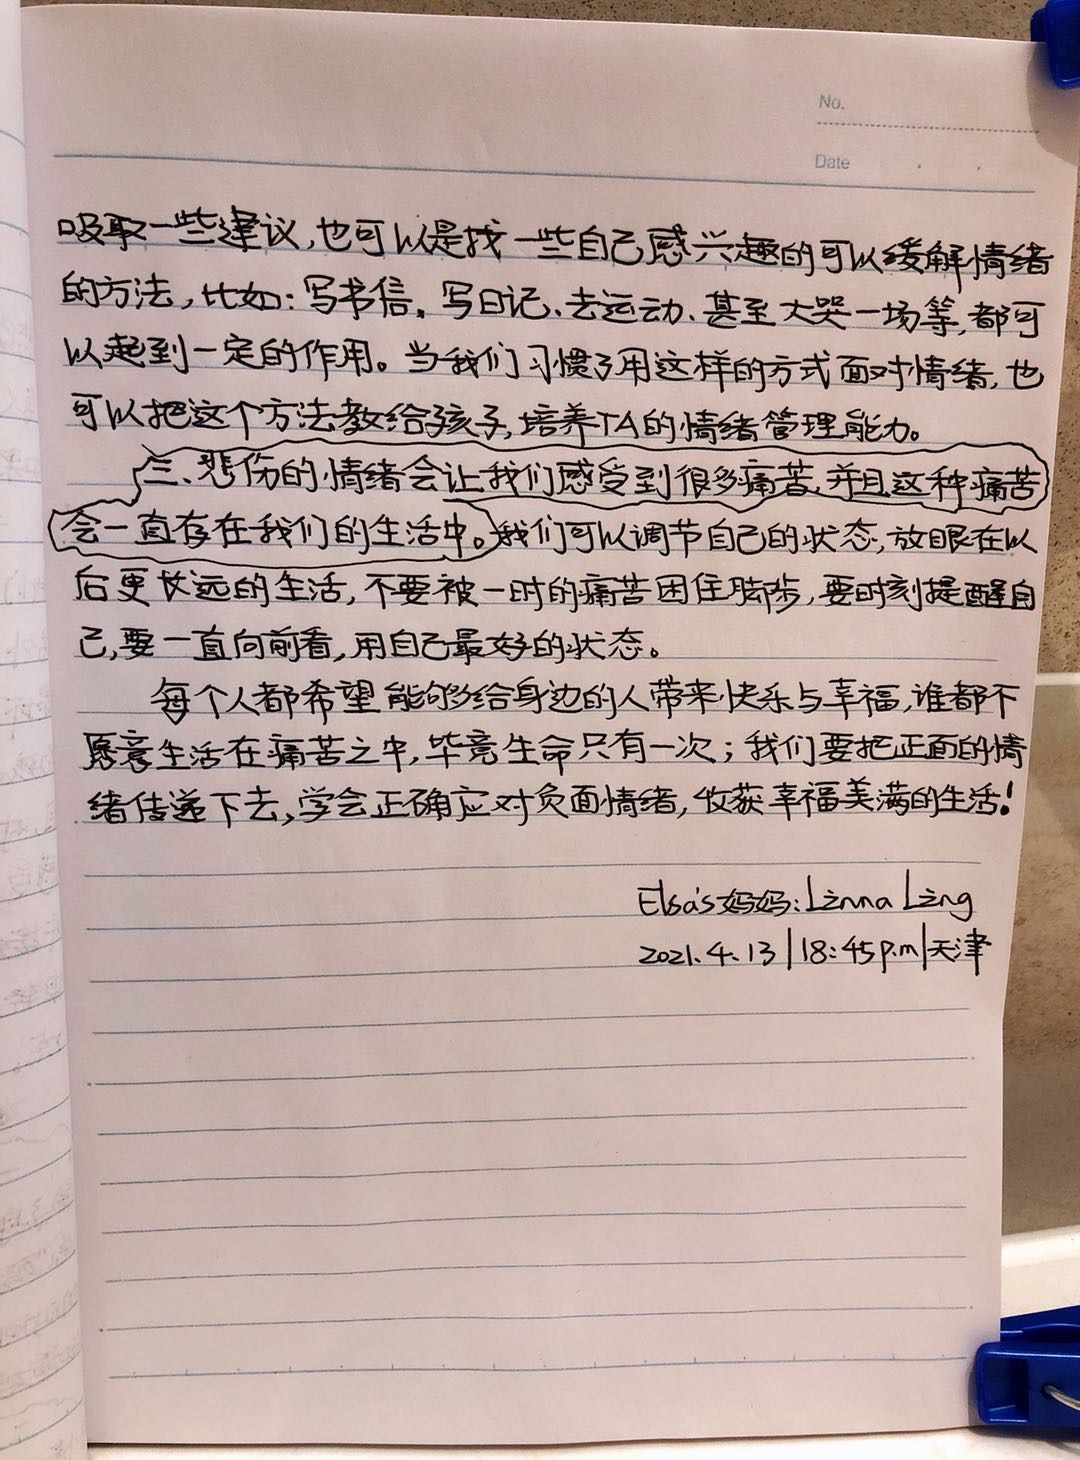 No.
Date
吸取一些建议,也可以是找一些自己感兴趣的可以缓解情绪
的方法,比如:写书信、写日记、去运动、甚至大哭一场等,都可
以起到一定的作用。当我们习惯了用这样的方式面对情绪,也
可以把这个方法教给孩子,培养TA的情绪管理能力。
三、悲伤的情绪会让我们感受到很多痛苦,并且这种痛苦
会一直存在我们的生活中。我们可以调节自己的状态,放眼在以
后更长远的生活,不要被一时的痛苦困住脚步,要时刻提醒自
己,要一直向前看,用自己最好的状态。
每个人都希望能够给身边的人带来快乐与幸福,谁都不
愿意生活在痛苦之中,毕竟生命只有一次;我们要把正面的情
绪传递下去,学会正确应对负面情绪,收获幸福美满的生活!
Elsa's妈妈:Linna Ling
2021.4.13|18:45p.m|天津